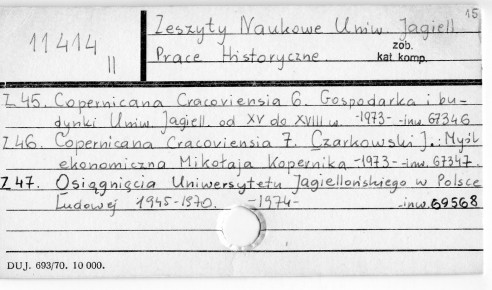 15
11414
II
Zeszyty Naukowe Uniw. Jagiell.
Prace Historyczne.
zob.
kat. komp.
Z 45. Copernicana Cracoviensia 6. Gospodarka i bu-
dynki Uniw. Jagiell. od XV do XVIII w. -1973- -inw. 67346
Z 46. Copernicana Cracoviensia 7. Czarkowski J.: Myśl
ekonomiczna Mikołaja Kopernika -1973- -inw. 67347.
Z 47. Osiągnięcia Uniwersytetu Jagiellońskiego w Polsce
Ludowej 1945-1970. -1974- -inw. 69568
DUJ. 693/70. 10 000.